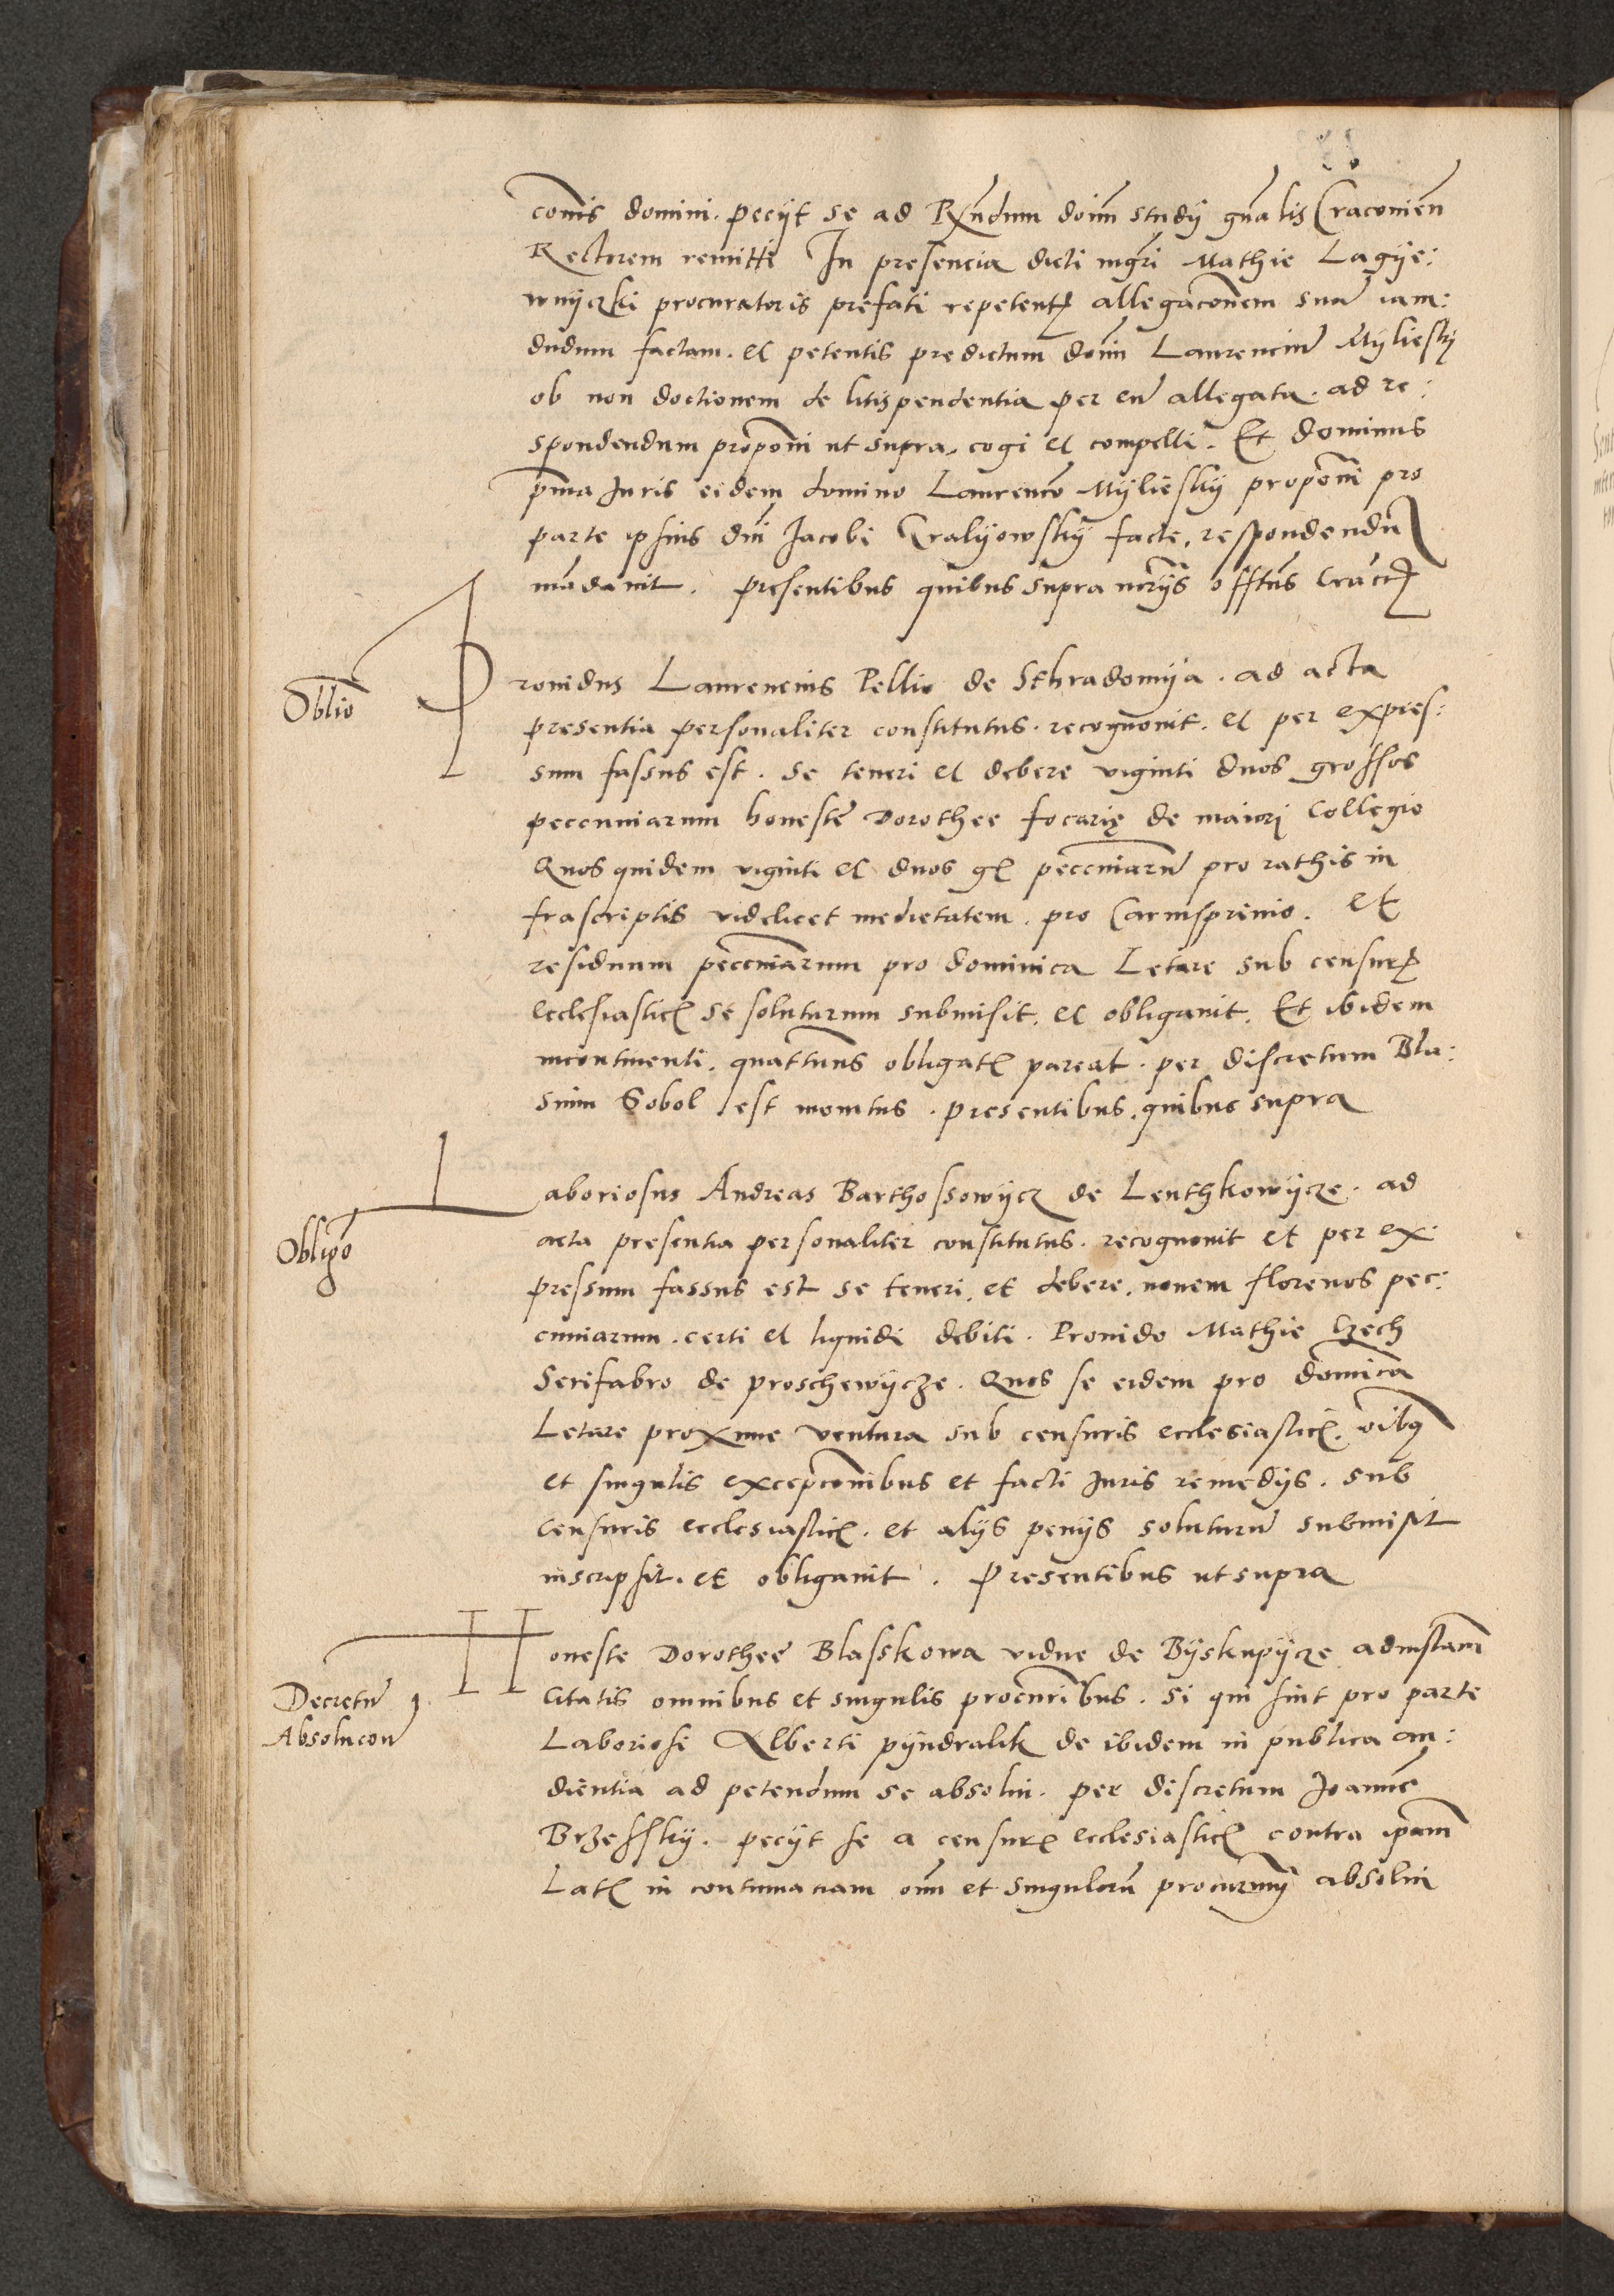 comis domini. peciit se ad Rndum doim studij gnalis Craconien
Rectorem remitti In presencia dicti mgri Mathie Lagije:
wnijczki procuratoris prefati repetent allegaconem suam iam:
dudum factam. et petentis predictum dnm Laurencium Mijliesky
ob non doctionem de litispendentia per eum allegata. ad re:
spondendum proponi ut supra. cogi et compelli. Et dominus
pma Juris eidem domino Laurenco Mijliesky proponi pro
parte ipsius dni Jacobi Cralyowskij facte. respondendum
mādauit. presentibus quibus supra
Oblio
Prouidus Laurencius Pellio de Sthradomija. ad acta
presentia personaliter constitutus. recognouit. et per expres:
sum fassus est. se teneri et debere viginti duos grossos
peccuniarum honeste Dorothee focarię de maiori Collegio
Quos quidem viginti et duos gr pecceniarum pro rathis in
frascriptis videlicet medietatem. pro Carnisprivio. Et
residuum pecceniarum pro dominica Letare sub censur
ecclesiastic se soluturum submisit. et obligauit. Et ibidem
incontinenti. quattenus obligat pareat. per discretum Bla:
sium Sobol est monitus. presentibus. quibus supra
Obligo
Laboriosus Andreas Barthossowijcz de Lenthkowijcze. ad
acta presentia personaliter constitutus. recognouit et per ex:
pressum fassus est se teneri. et debere. nouem florenos pec:
cuniarum. certi et liquidi debiti. Prouido Mathie Czech
Serifabro de proschewijcze. Quos se eidem pro dominica
Letare proxime ventura sub censuris ecclesiastic. oibus
et singulis excepconibus et facti Juris remedijs. sub
censuris ecclesiastic. et alijs penijs soluturum submisit
inscripsit. et obligauit. Presentibus ut supra
Decretum
Absolucon
Honeste Dorothee Blasskowa vidue de Bijskupijcze adinstam
Citatis omnibus et singulis procuribus. si qui sint pro parte
Laboriosi Alberti pijndralik de ibidem in publica au:
dientia ad petendum se absolui. per discretum Joannem
Brzesskij. peciit se a censur ecclesiastic contra ipam
Lat in contumaciam oim et singulorum absolui